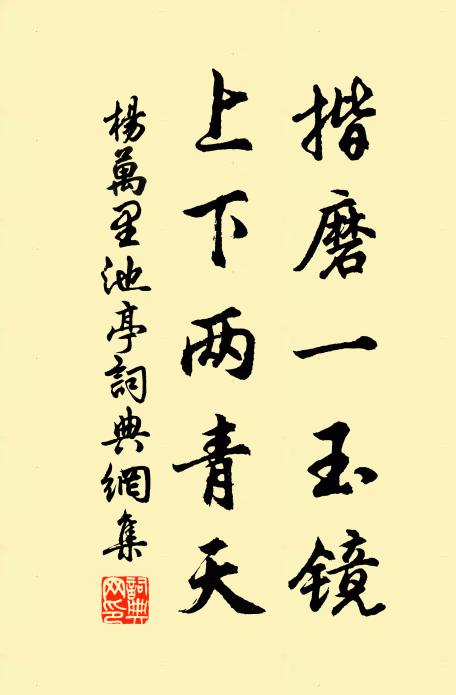 揩磨一玉镜
上下两青天
楊萬里池亭詞典網集
詞典网印